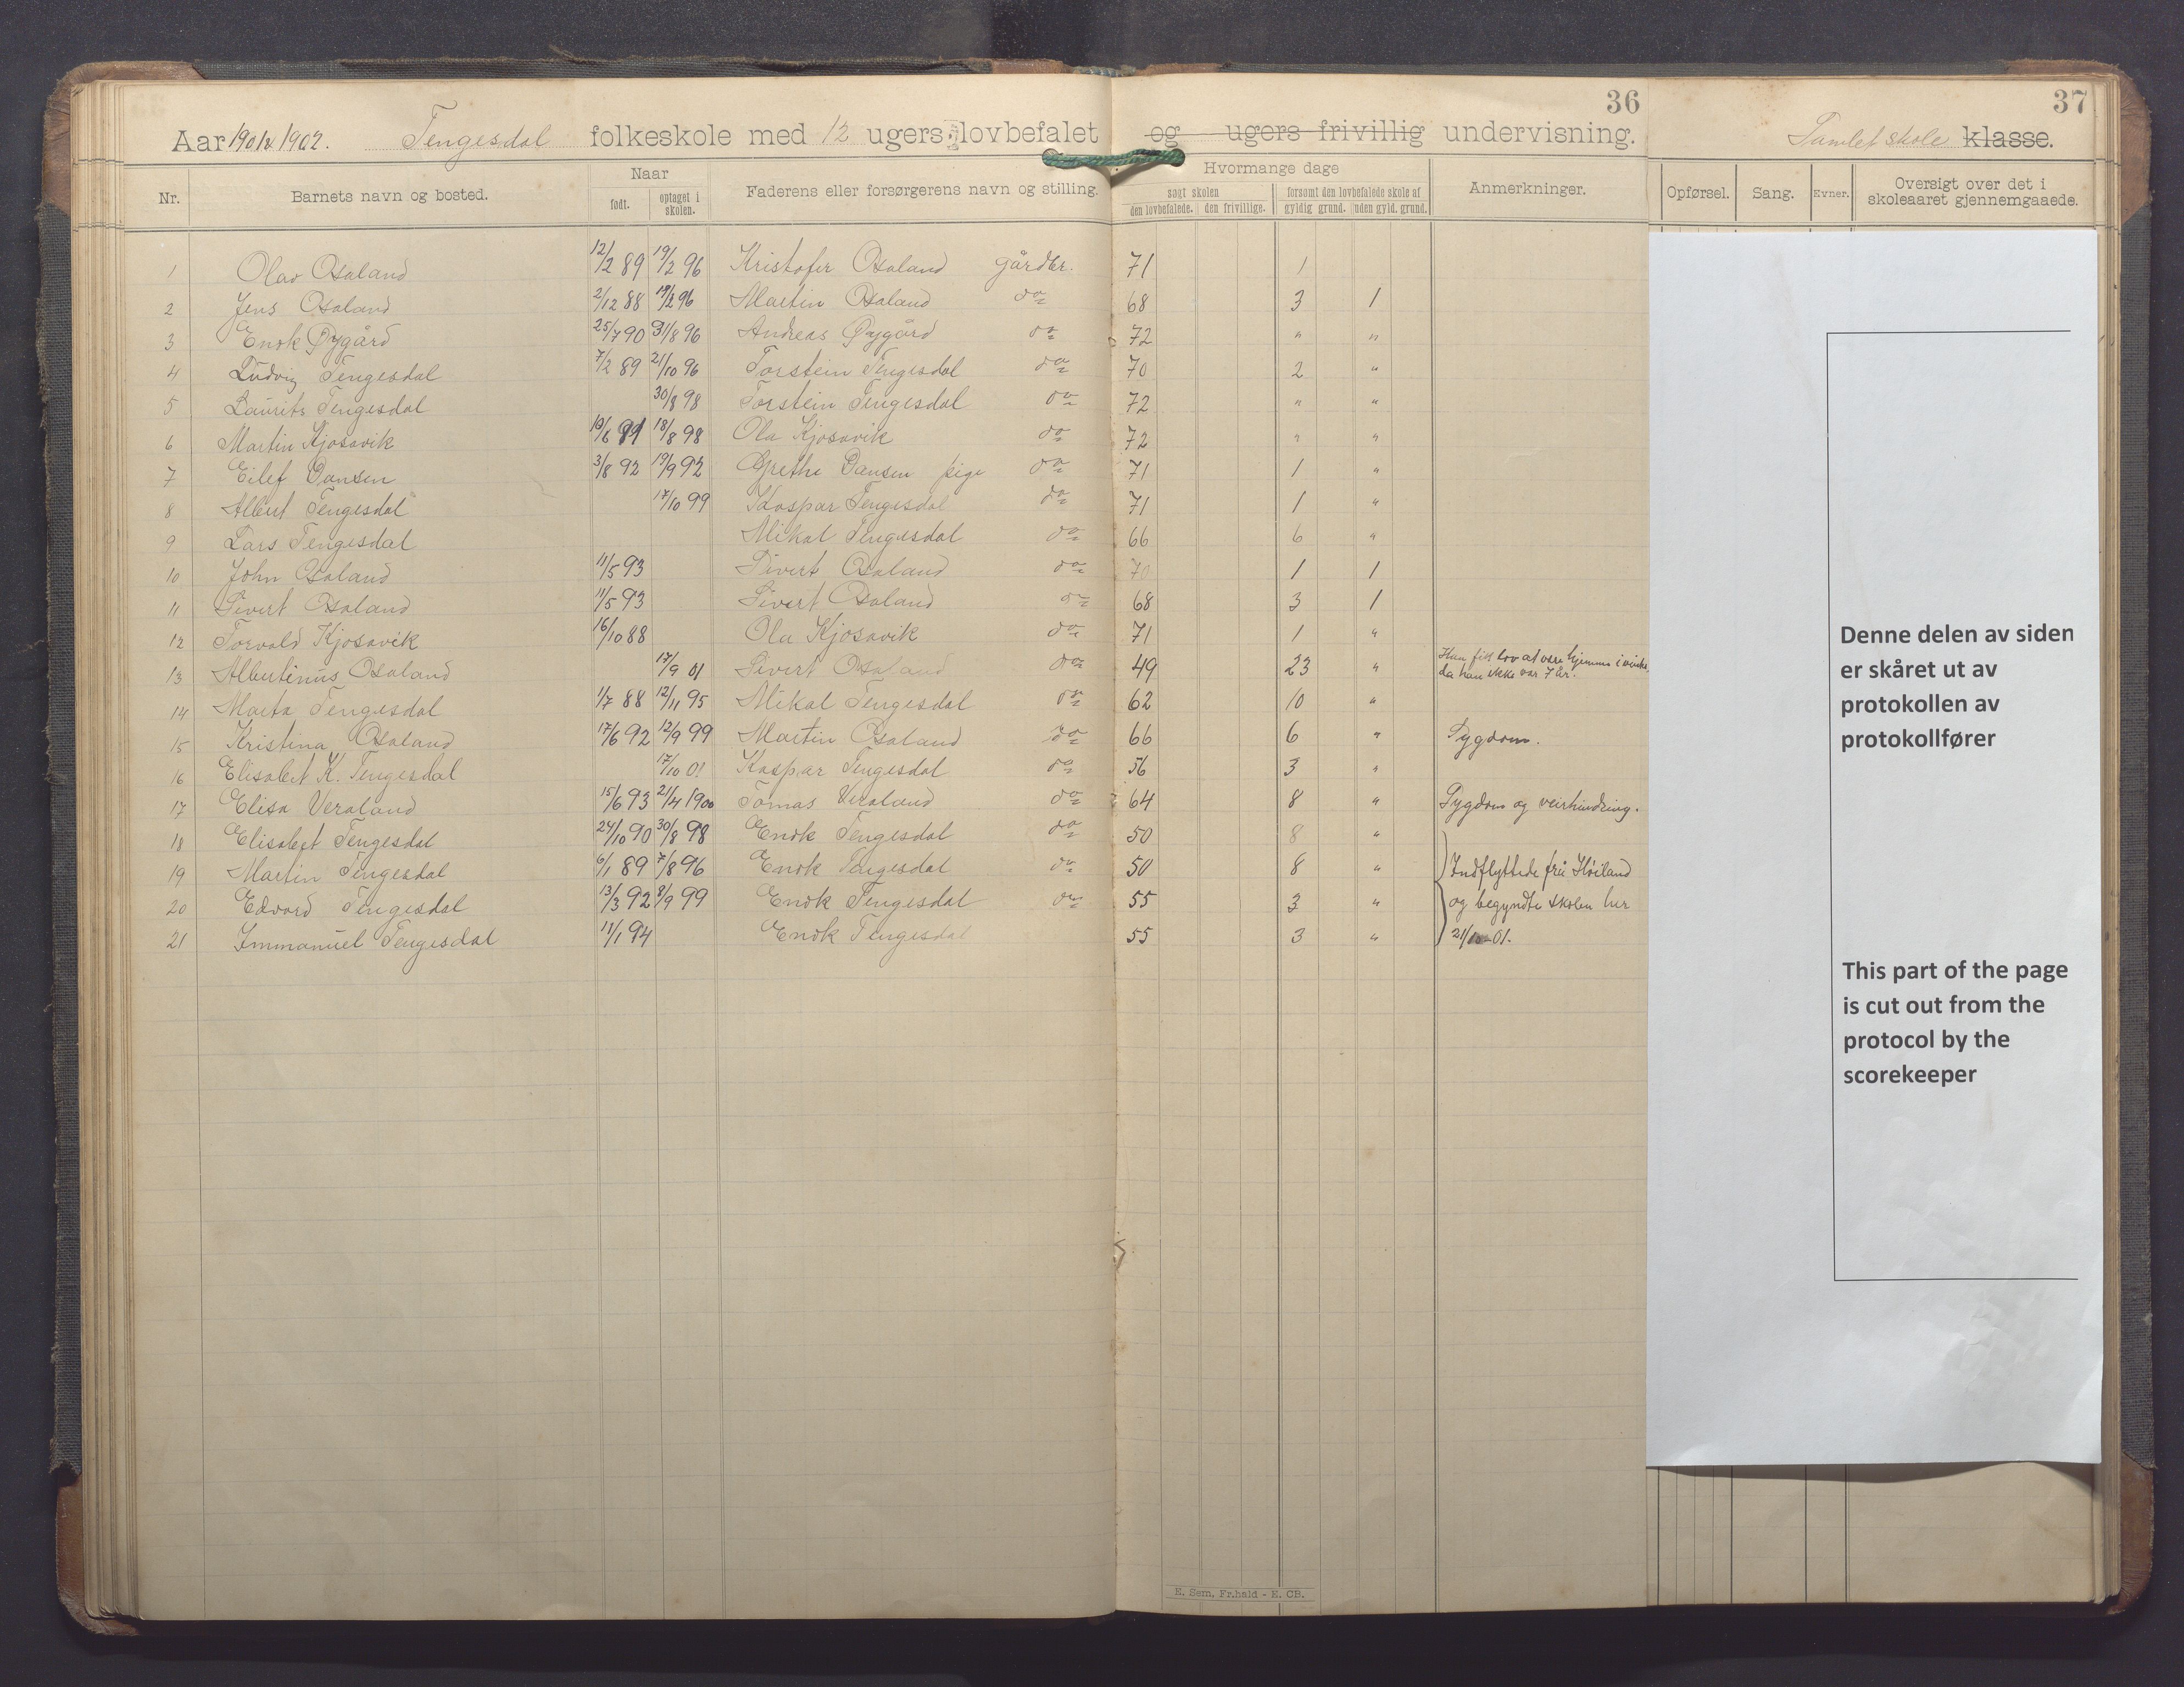 36
37
Aar 1901 & 1902. Tengesdal folkeskole med 12 ugers lovbefalet og ugers frivillig undervisning. Samlet skole klasse.
Nr. Barnets navn og bosted. Naar født. optaget i skolen. Faderens eller forsørgerens navn og stilling. Hvormange dage søgt skolen den lovbefalede. den frivillige. forsømt den lovbefalede skole af gyldig grund. uden gyld. grund. Anmerkninger. Opførsel. Sang. Evner. Oversigt over det i skoleaaret gjennemgaaede.
1 Olav Osaland 12/2 89 19/2 96 Kristofer Osaland gårdbr. 71 1
2 Jens Osaland 2/12 88 19/2 96 Martin Osaland do 68 3 1
3 Enok Øygård 25/7 90 31/8 96 Andreas Øygård do 72 " "
4 Ludvig Tengesdal 7/2 89 21/10 96 Torstein Tengesdal do 70 2 "
5 Laurits Tengesdal 30/8 98 Torstein Tengesdal do 72 " "
6 Martin Kjosavik 10/6 91 18/8 98 Ola Kjosavik do 72 " "
7 Eilef Dansen 3/8 92 19/9 92 Grethe Dansen pige do 71 1 "
8 Albert Tengesdal 17/10 99 Kaspar Tengesdal do 71 1 "
9 Lars Tengesdal Mikal Tengesdal do 66 6 "
10 John Osaland 11/5 93 Sivert Osaland do 70 1 1
11 Sivert Osaland 11/5 93 Sivert Osaland do 68 3 1
12 Torvald Kjosavik 16/10 88 Ola Kjosavik do 71 1 "
13 Albertinus Osaland 17/9 01 Sivert Osaland do 49 23 " Han fik lov at være hjemme i
da han ikke var 7 år.
14 Marta Tengesdal 1/7 88 12/11 95 Mikal Tengesdal do 62 10 "
15 Kristina Osaland 17/6 92 12/9 99 Martin Osaland do 66 6 " Sygdom.
16 Elisabet K. Tengesdal 17/10 01 Kaspar Tengesdal do 56 3 "
17 Elisa Veraland 15/6 93 21/4 1900 Tomas Veraland do 64 8 " Sygdom og veirhindring.
18 Elisabet Tengesdal 24/10 90 30/8 98 Enok Tengesdal do 50 8 "
19 Martin Tengesdal 6/1 89 7/8 96 Enok Tengesdal do 50 8 " Indflyttede fra Høiland
20 Edvard Tengesdal 13/3 92 8/9 99 Enok Tengesdal do 55 3 " og begyndte skolen her
21 Immanuel Tengesdal 11/1 94 Enok Tengesdal 55 3 " 21/10-01.
Denne delen av siden
er skåret ut av
protokollen av
protokollfører
This part of the page
is cut out from the
protocol by the
scorekeeper
E. Sem, Fr.hald - E. CB.